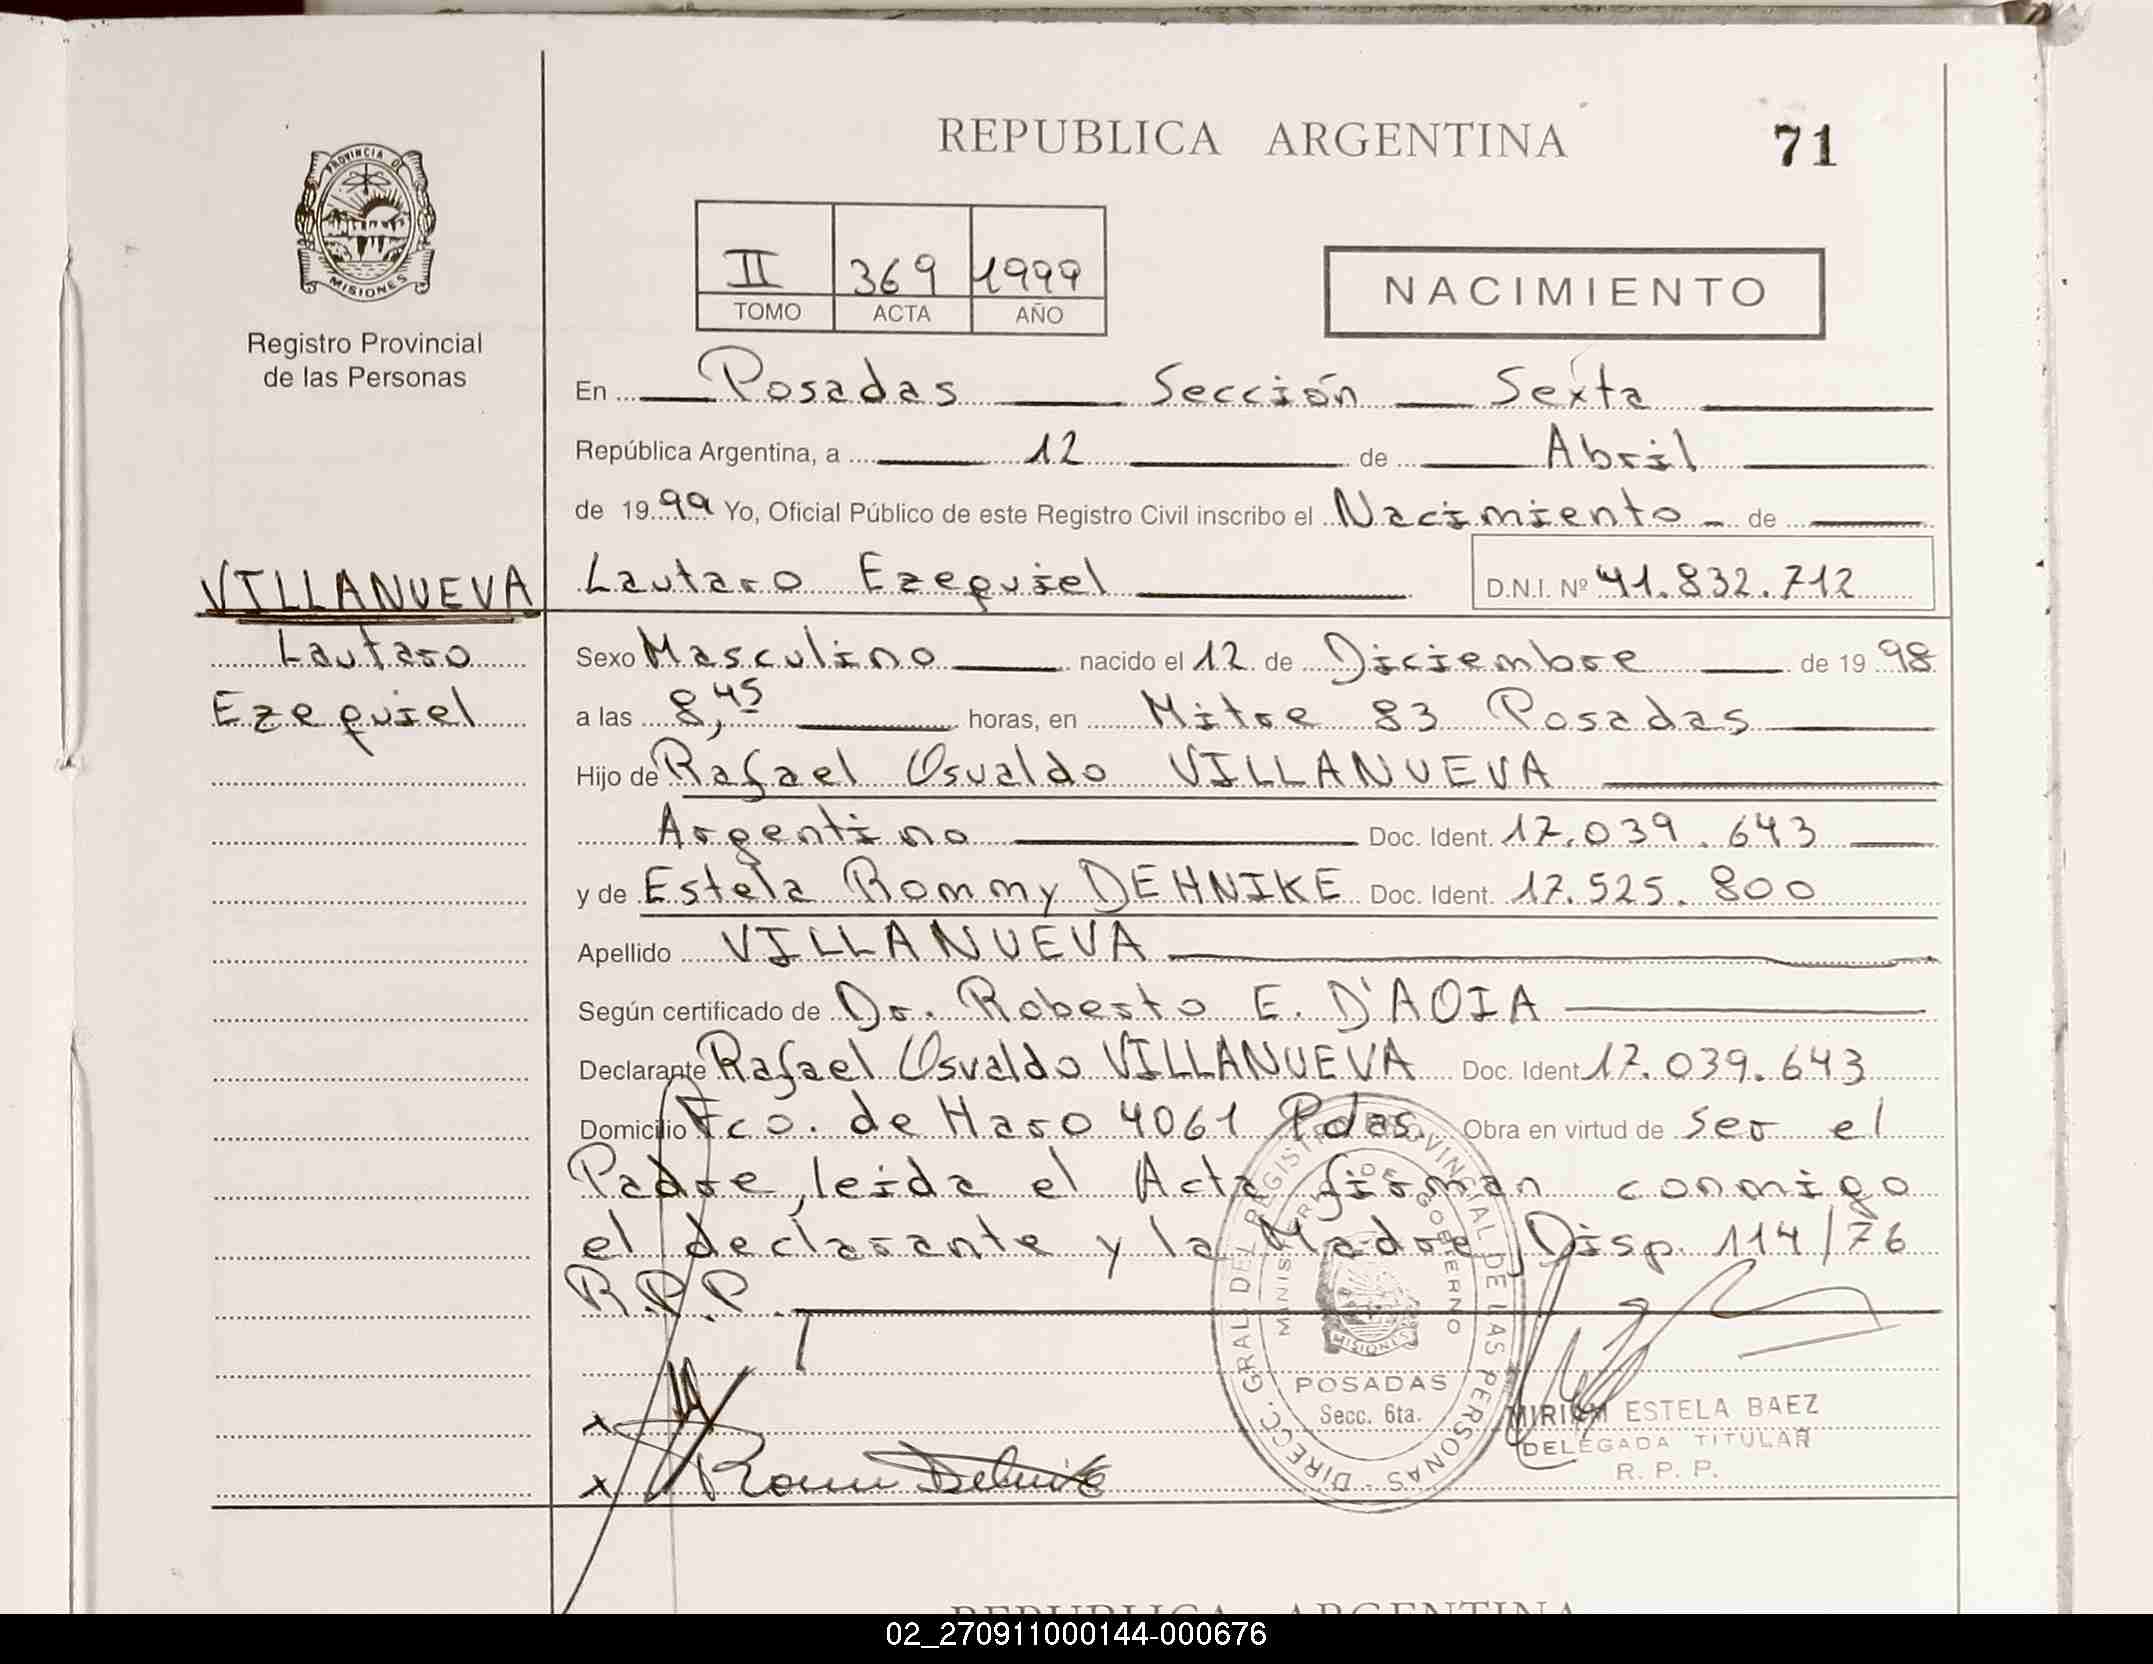 REPUBLICA ARGENTINA
71
PROVINCIA DE
MISIONES
Registro Provincial
de las Personas
II 369 1999
TOMO ACTA AÑO
NACIMIENTO
En Posadas Sección Sexta
República Argentina, a 12 de Abril
de 1999 Yo, Oficial Público de este Registro Civil inscribo el Nacimiento de
VILLANUEVA
Lautaro
Ezequiel
Lautaro Ezequiel D.N.I. Nº 41.832.712
Sexo Masculino nacido el 12 de Diciembre de 1998
a las 8,45 horas, en Mitre 83 Posadas
Hijo de Rafael Osvaldo VILLANUEVA
Argentino Doc. Ident. 17.039.643
y de Estela Rommy DEHNIKE Doc. Ident. 17.525.800
Apellido VILLANUEVA
Según certificado de Dr. Roberto E. D'AOIA
Declarante Rafael Osvaldo VILLANUEVA Doc. Ident 17.039.643
Domicilio Fco. de Haro 4061 Pdas. Obra en virtud de ser el
Padre, leida el Acta firman conmigo
el declarante y la Madre, Disp. 114/76
R.P.P.
DIRECC. GRAL. DEL REGISTRO PROVINCIAL DE LAS PERSONAS -
MINISTERIO DE GOBIERNO
MISIONES
POSADAS
Secc. 6ta.
MIRIAM ESTELA BAEZ
DELEGADA TITULAR
R. P. P.
REPUBLICA ARGENTINA
02_270911000144-000676